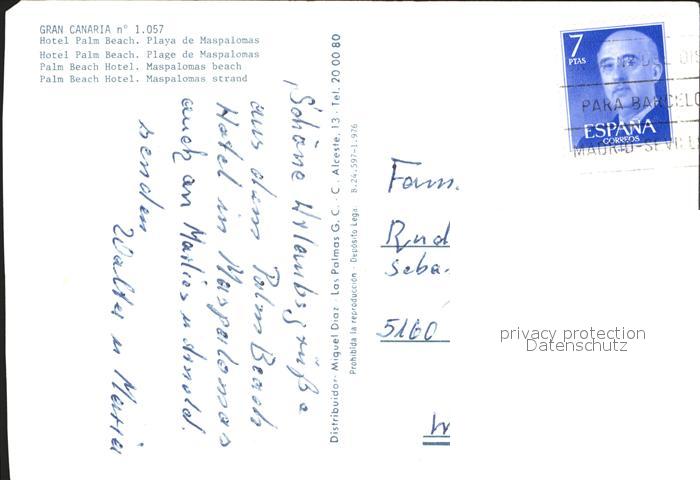 GRAN CANARIA nº 1.057
Hotel Palm Beach. Playa de Maspalomas
Hotel Palm Beach. Plage de Maspalomas
Palm Beach Hotel. Maspalomas beach
Palm Beach Hotel. Maspalomas strand
Schöne Urlaubsgrüße
aus dem Palm Beach
Hotel in Maspalomas
auch an Marlies u Arnold.
senden
Walter u Maria
Distribuidor: Miguel Diaz - Las Palmas G. C. - C. Alceste, 13 - Tel. 20 00 80
Prohibida la reproducción - Depósito Lega. B.24.597-1.976
7
PTAS
ESPAÑA
CORREOS
PARA BARCELO
MADRID-SEVILL
Fam.
Rud
Seba
5160
W
privacy protection
Datenschutz